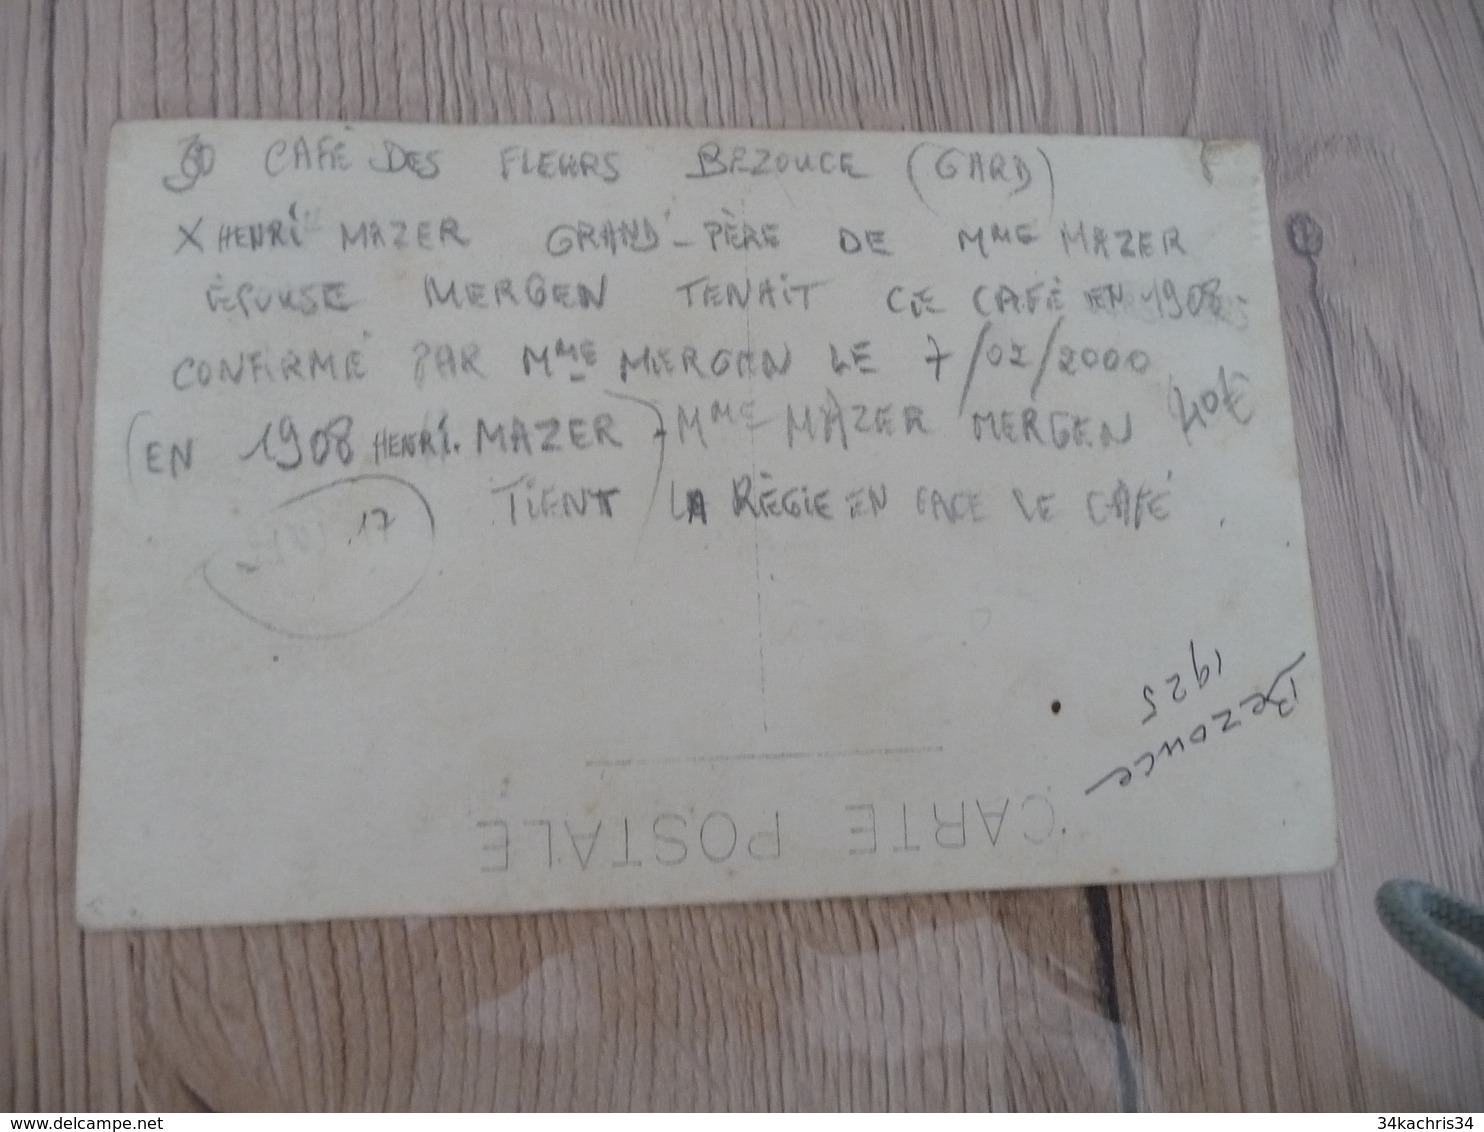 30 CAFÉ DES FLEURS BEZOUCE (GARD)
X HENRI MAZER GRAND-PÈRE DE MME MAZER
ÉPOUSE MERGEN TENAIT CE CAFÉ EN 1908
CONFIRMÉ PAR MME MERGEN LE 7/02/2000
(EN 1908 HENRI. MAZER) MME MAZER MERGEN
TIENT LA RÈGIE EN FACE LE CAFÉ
17
Bezouce
1925
CARTE POSTALE
34kachris34